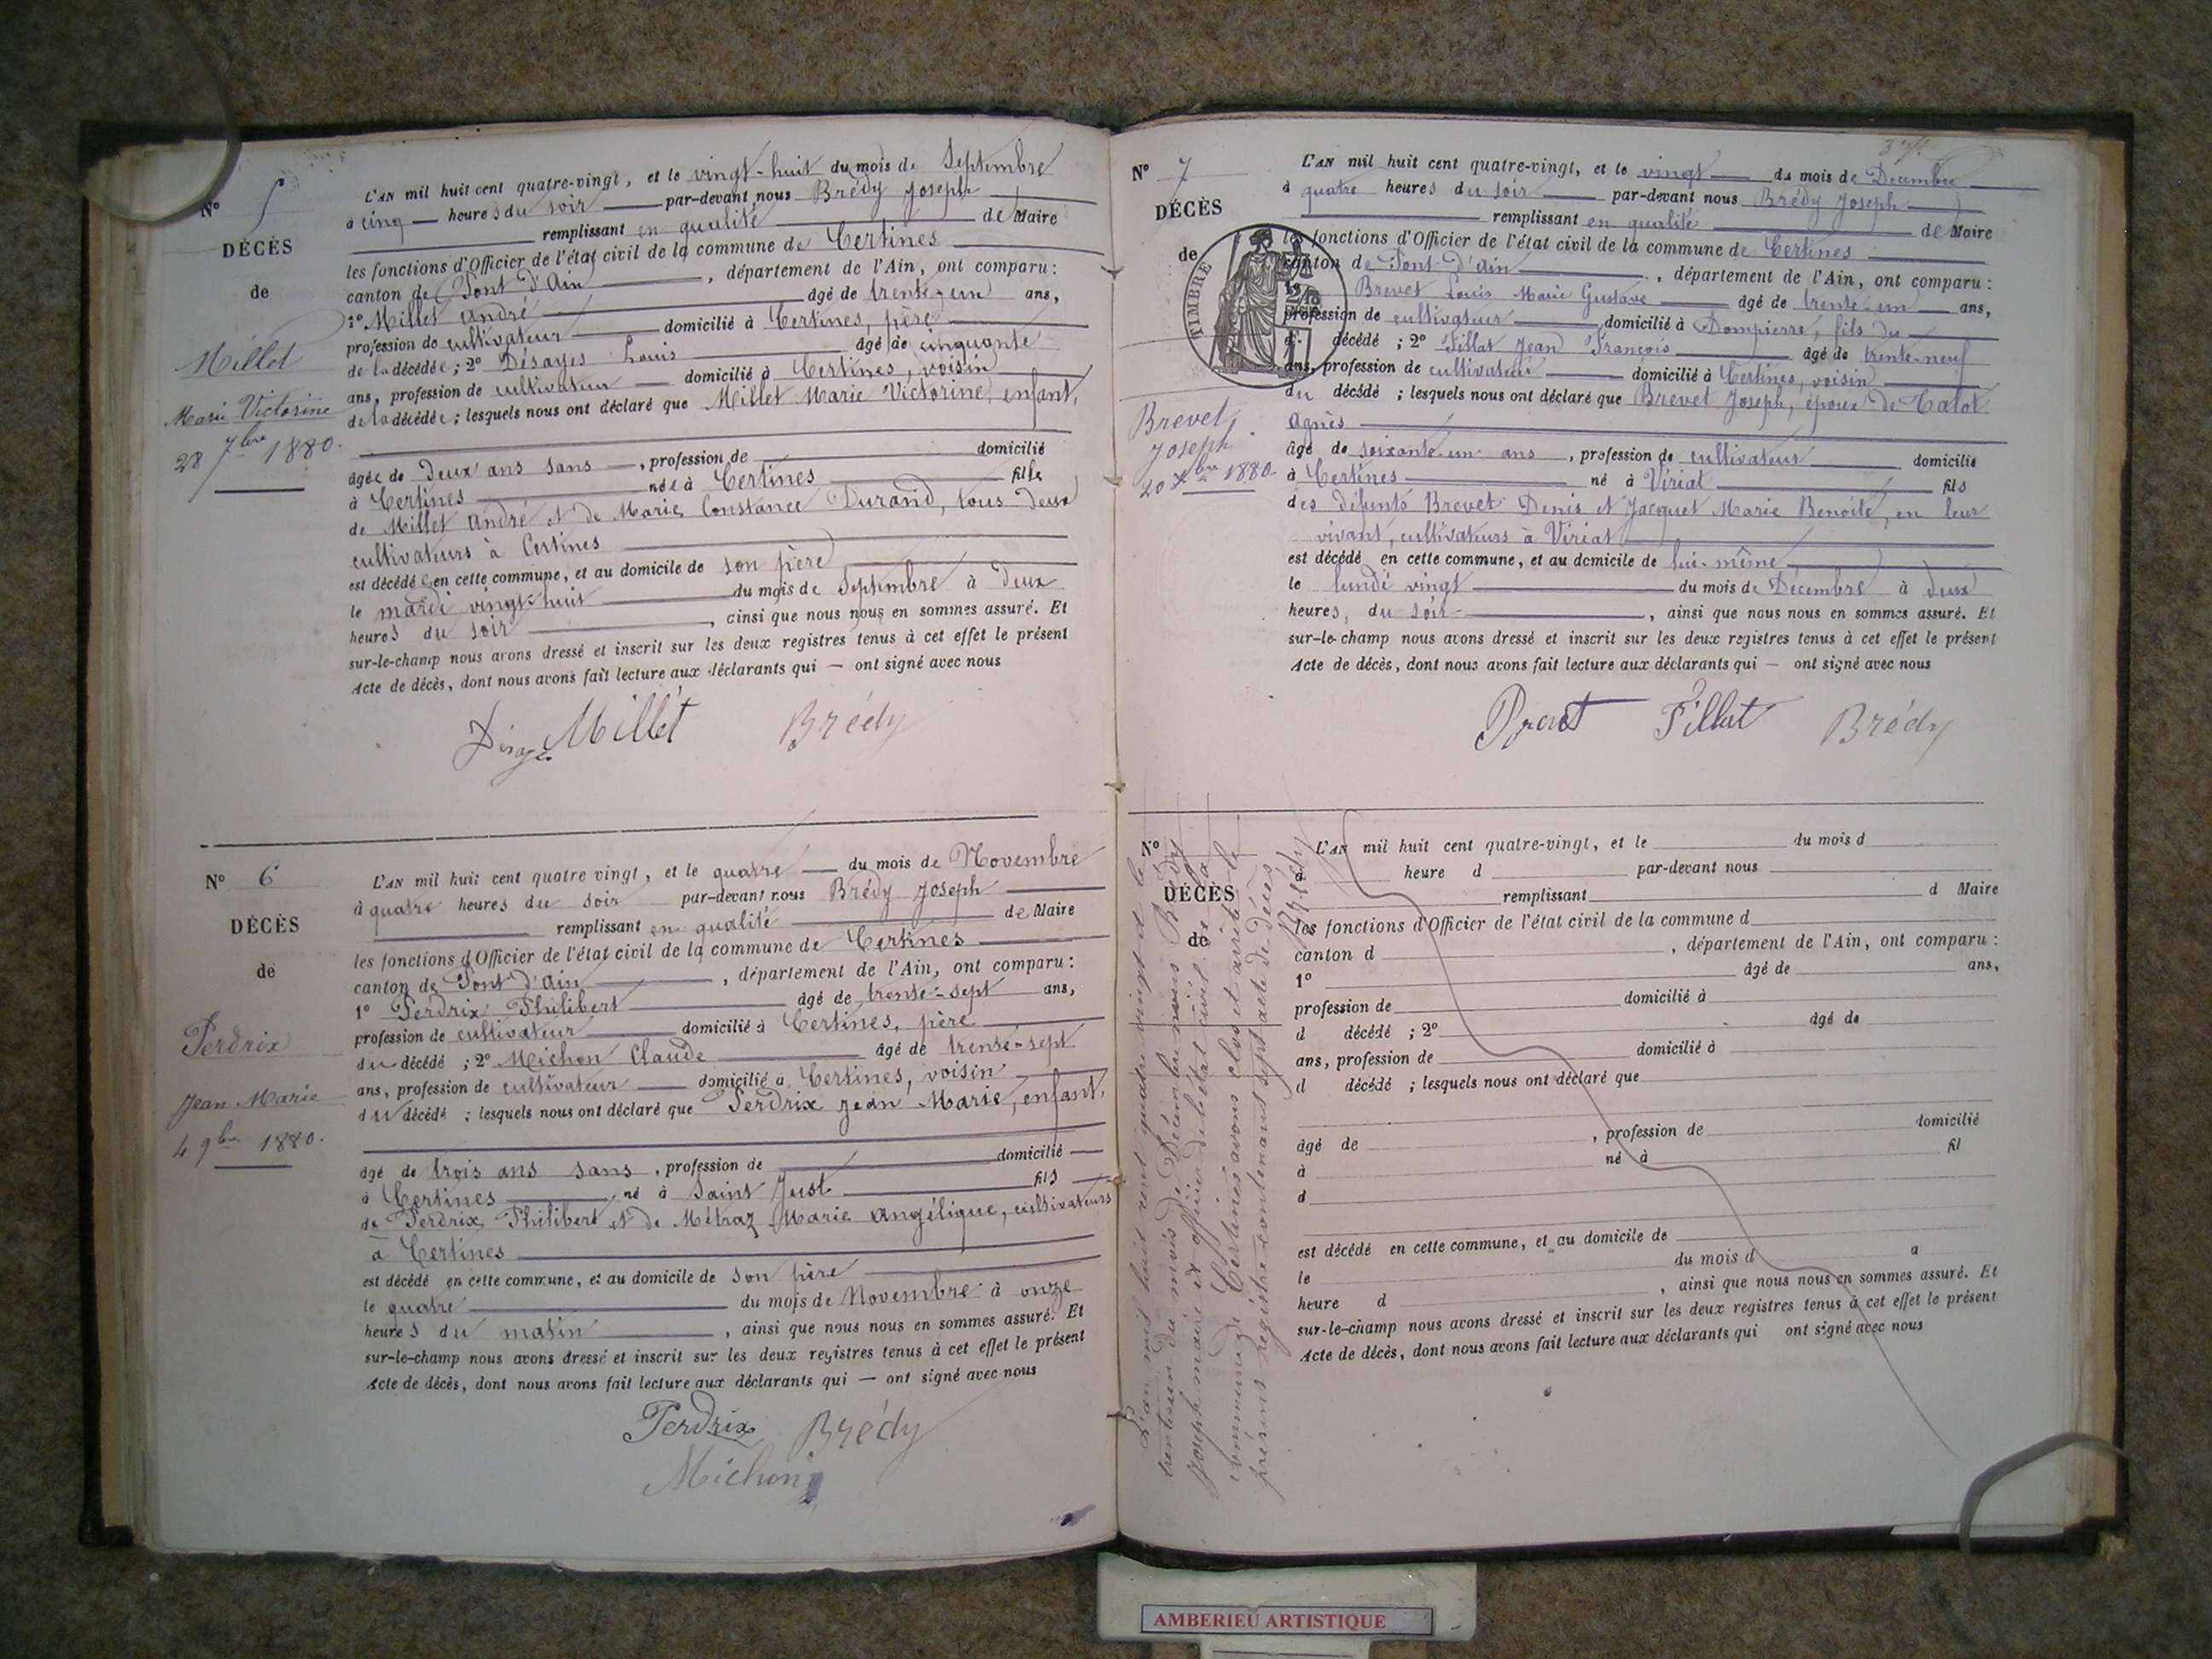 N° 5
DÉCÈS
de
Millet
Marie Victorine
28 7bre 1880.
L'AN mil huit cent quatre-vingt, et le vingt-huit du mois de Septembre
à cinq heures du soir par-devant nous Brédy Joseph
remplissant en qualité de Maire
les fonctions d'Officier de l'état civil de la commune de Certines
canton de Pont d'Ain, département de l'Ain, ont comparu :
1° Millet André âgé de trente-un ans,
profession de cultivateur domicilié à Certines, père
de la décédée ; 2° Désayes Louis âgé de cinquante
ans, profession de cultivateur domicilié à Certines, voisin
de la décédée ; lesquels nous ont déclaré que Millet Marie Victorine, enfant,
âgée de deux ans sans, profession de domicilié
à Certines née à Certines fille
de Millet André et de Marie Constance Durand, tous deux
cultivateurs à Certines
est décédée en cette commune, et au domicile de son père
le mardi vingt-huit du mois de Septembre à deux
heures du soir, ainsi que nous nous en sommes assuré. Et
sur-le-champ nous avons dressé et inscrit sur les deux registres tenus à cet effet le présent
Acte de décès, dont nous avons fait lecture aux déclarants qui — ont signé avec nous
Millet Brédy
N° 6
DÉCÈS
de
Perdrix
Jean Marie
4 9bre 1880.
L'AN mil huit cent quatre vingt, et le quatre du mois de Novembre
à quatre heures du soir par-devant nous Brédy Joseph
remplissant en qualité de Maire
les fonctions d'Officier de l'état civil de la commune de Certines
canton de Pont d'Ain, département de l'Ain, ont comparu :
1° Perdrix Philibert âgé de trente-sept ans,
profession de cultivateur domicilié à Certines, père
du décédé ; 2° Michon Claude âgé de trente-sept
ans, profession de cultivateur domicilié à Certines, voisin
du décédé ; lesquels nous ont déclaré que Perdrix Jean Marie, enfant,
âgé de trois ans sans, profession de domicilié
à Certines né à Saint Just fils
de Perdrix Philibert et de Métraz Marie Angélique, cultivateurs
à Certines
est décédé en cette commune, et au domicile de son père
le quatre du mois de Novembre à onze
heures du matin, ainsi que nous nous en sommes assuré. Et
sur-le-champ nous avons dressé et inscrit sur les deux registres tenus à cet effet le présent
Acte de décès, dont nous avons fait lecture aux déclarants qui — ont signé avec nous
Perdrix Brédy
Michon
N° 7
DÉCÈS
de
TIMBRE
Brevet
Joseph
20 Xbre 1880.
L'AN mil huit cent quatre-vingt, et le vingt du mois de Décembre
à quatre heures du soir par-devant nous Brédy Joseph
remplissant en qualité de Maire
les fonctions d'Officier de l'état civil de la commune de Certines
canton de Pont-d'Ain, département de l'Ain, ont comparu :
1° Brevet Louis Marie Gustave âgé de trente-un ans,
profession de cultivateur domicilié à Dompierre, fils du
décédé ; 2° Fillat Jean François âgé de trente-neuf
ans, profession de cultivateur domicilié à Certines, voisin
du décédé ; lesquels nous ont déclaré que Brevet Joseph, époux de Calot
Agnès
âgé de soixante-un ans, profession de cultivateur domicilié
à Certines né à Viriat fils
des défunts Brevet Denis et Jacquet Marie Benoîte, en leur
vivant, cultivateurs à Viriat
est décédé en cette commune, et au domicile de lui-même
le lundi vingt du mois de Décembre à deux
heures, du soir, ainsi que nous nous en sommes assuré. Et
sur-le-champ nous avons dressé et inscrit sur les deux registres tenus à cet effet le présent
Acte de décès, dont nous avons fait lecture aux déclarants qui — ont signé avec nous
Brevet Fillat Brédy
N°
DÉCÈS
de
L'an mil huit cent quatre vingt et le
trentième du mois de Décembre nous Brédy
Joseph maire et officier de l'état civil de la
commune de Certines avons clos et arrêté le
présent registre contenant sept acte de décès
Brédy
L'AN mil huit cent quatre-vingt, et le du mois d
à heure d par-devant nous
remplissant d Maire
les fonctions d'Officier de l'état civil de la commune d
canton d, département de l'Ain, ont comparu :
1° âgé de ans,
profession de domicilié à
d décédé ; 2° âgé de
ans, profession de domicilié à
d décédé ; lesquels nous ont déclaré que
âgé de, profession de domicilié
à né à fil
d
est décédé en cette commune, et au domicile de
le du mois d à
heure d, ainsi que nous nous en sommes assuré. Et
sur-le-champ nous avons dressé et inscrit sur les deux registres tenus à cet effet le présent
Acte de décès, dont nous avons fait lecture aux déclarants qui ont signé avec nous
AMBERIEU ARTISTIQUE